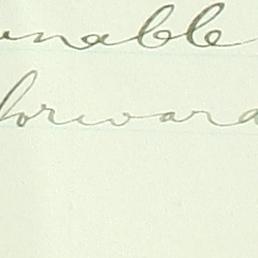 unable
forward